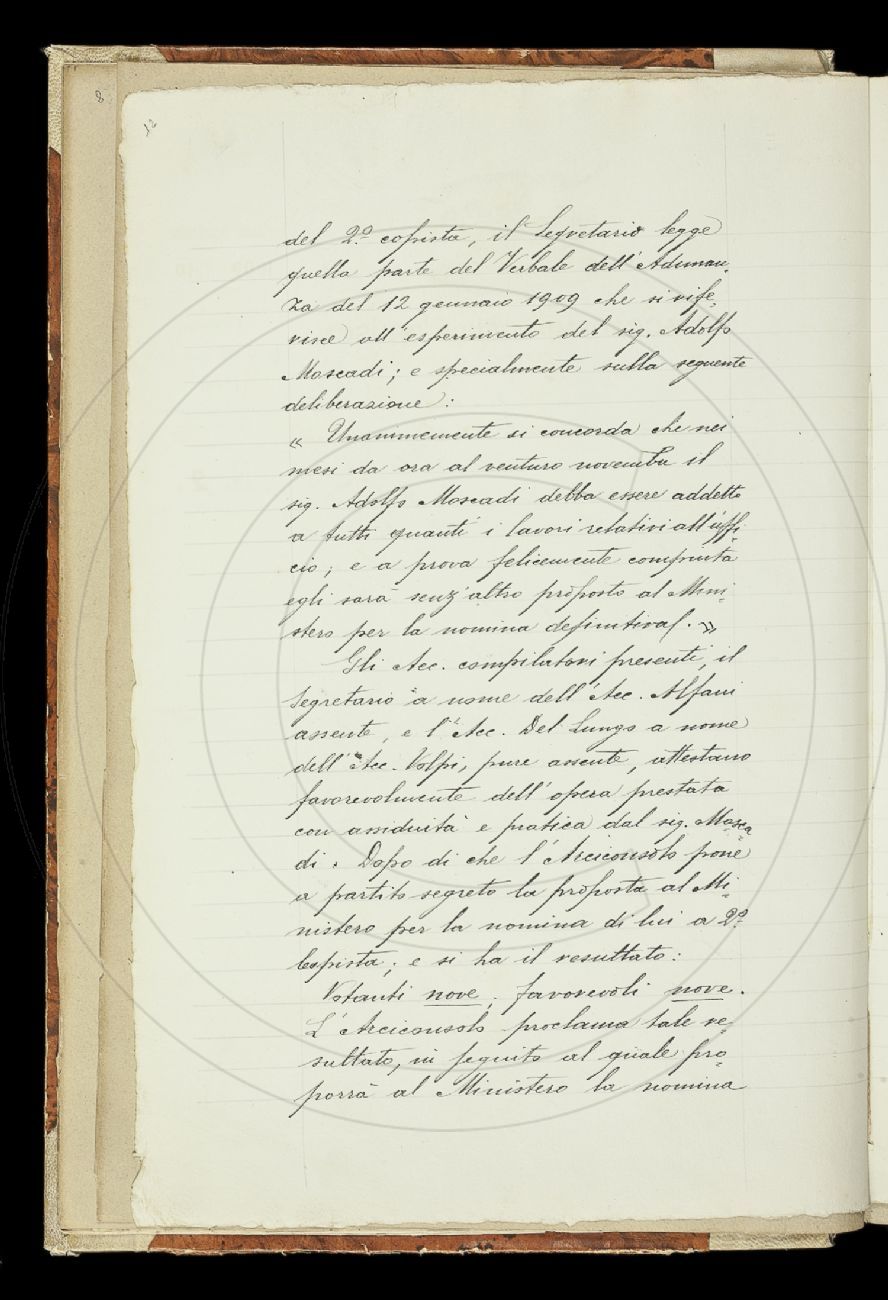 8
12
del 2.o copista, il Segretario legge
quella parte del Verbale dell'Adunan-
za del 12 gennaio 1909 che si rife-
risce all'esperimento del sig. Adolfo
Moscadi; e specialmente sulla seguente
deliberazione:
« Unanimemente si concorda che nei
mesi da ora al venturo novembre il
sig. Adolfo Moscadi debba essere addetto
a tutti quanti i lavori relativi all'uffi-
cio; e a prova felicemente compiuta
egli sarà senz'altro proposto al Mini-
stero per la nomina definitiva. »
Gli Acc. compilatori presenti, il
Segretario a nome dell'Acc. Alfani
assente, e l'Acc. Del Lungo a nome
dell'Acc. Volpi, pure assente, attestano
favorevolmente dell'opera prestata
con assiduità e pratica dal sig. Mosca-
di. Dopo di che l'Arciconsolo pone
a partito segreto la proposta al Mi-
nistero per la nomina di lui a 2o
Copista; e si ha il resultato:
Votanti nove; favorevoli nove.
L'Arciconsolo proclama tale re-
sultato, in seguito al quale pro-
porrà al Ministero la nomina